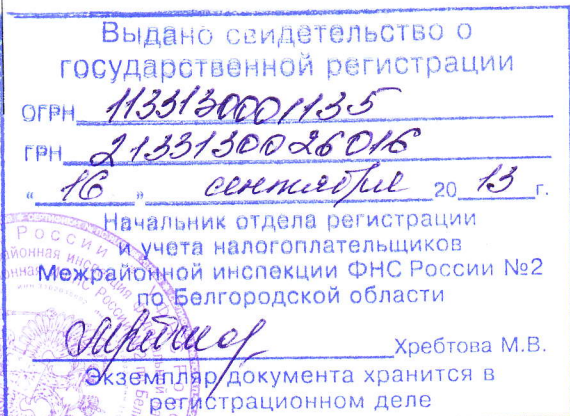 Выдано свидетельство о
государственной регистрации
ОГРН 1133130001135
ГРН 2133130026016
« 16 » сентября 20 13 г.
Начальник отдела регистрации
и учета налогоплательщиков
Межрайонной инспекции ФНС России №2
по Белгородской области
Хребтова М.В.
Экземпляр документа хранится в
регистрационном деле